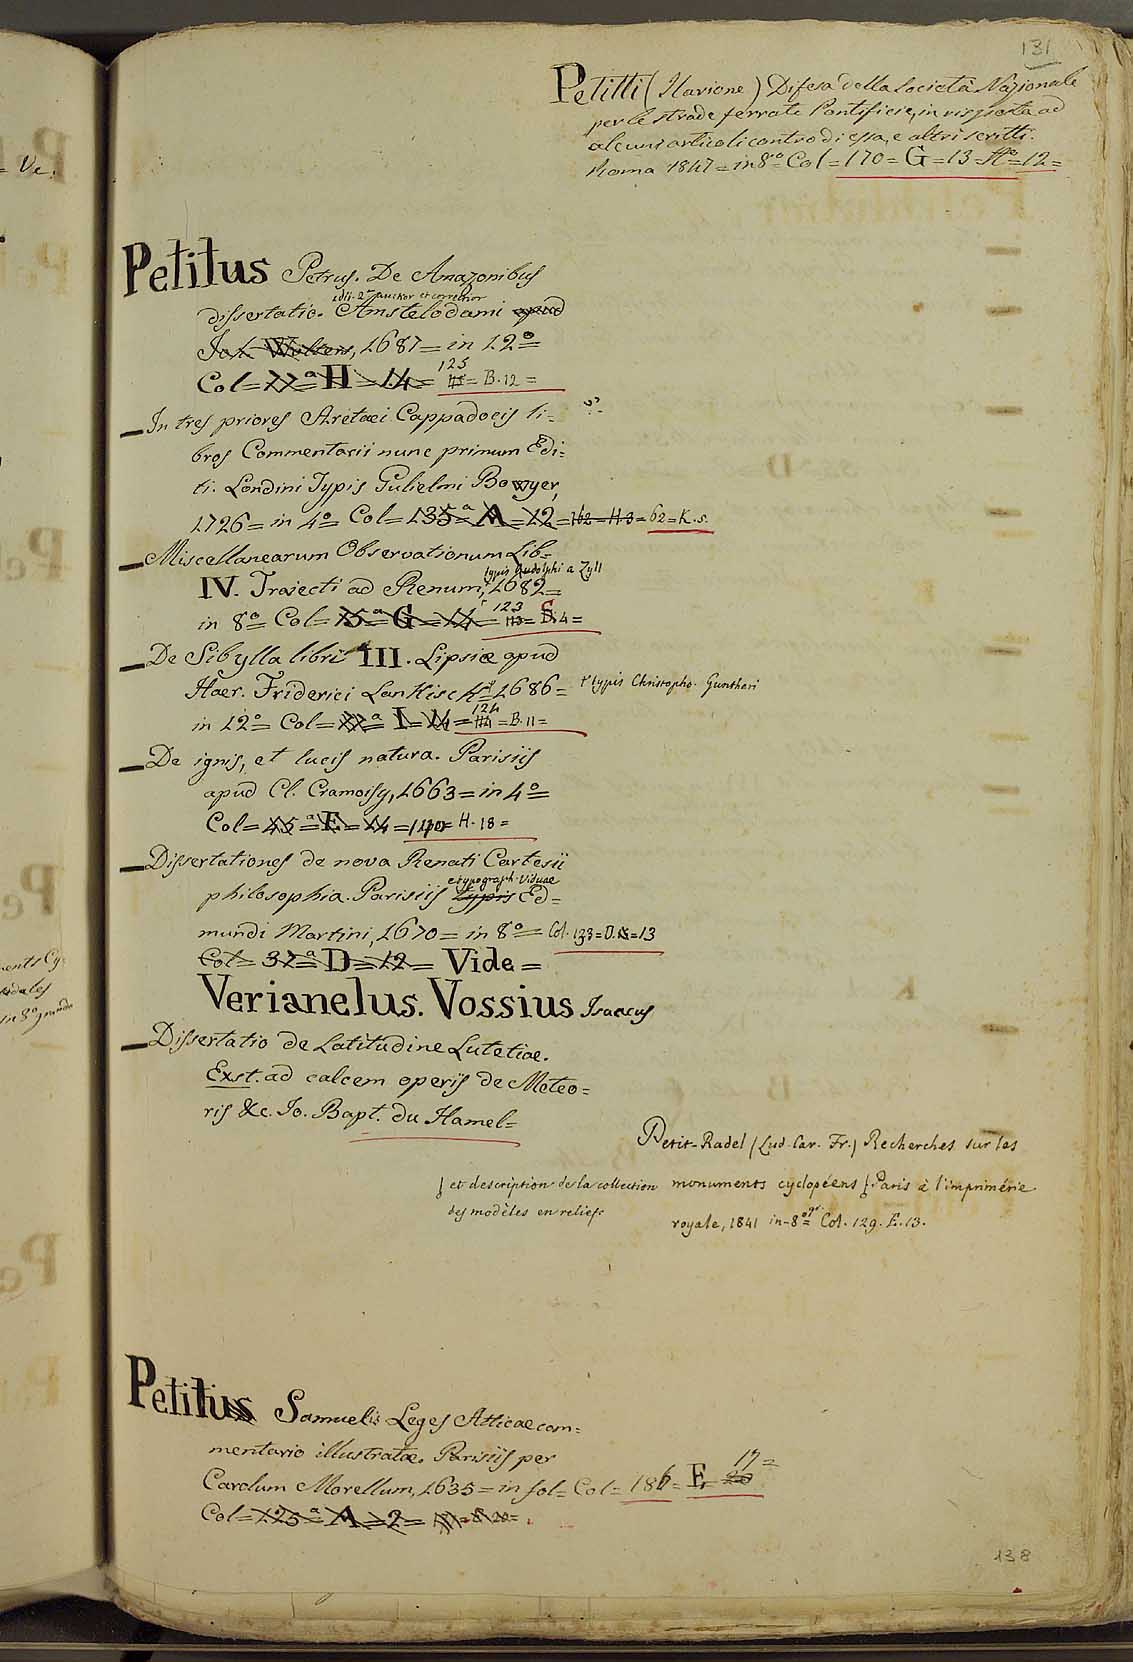 131
Petitti (Ilarione) Difesa della Società Nazionale
per le strade ferrate Pontificie, in risposta ad
alcuni articoli contro di essa, e altri scritti.
Roma 1847 = in 8º = Col = 170 = G = 13 = Aº = 12 =
Petitus Petrus. De Amazonibus
edit. 2ª auctior et correctior
dissertatio. Amstelodami apud
Joh. Wolters, 1687 = in 12º =
Col = 22ª H = 14 = 125 = B. 12 =
In tres priores Aretaei Cappadocis li=
bros Commentarii nunc primum Edi=
ti. Londini Typis Gulielmi Bowyer,
1726 = in 4º = Col = 135ª = A = 12 = 162 = H. 3 = 62 = K. 5.
Miscellanearum Observationum Lib=
typis Rudolphi a Zyll
IV. Trajecti ad Rhenum, 1682 =
in 8º = Col = 15ª = G = 14 = 123 = 4 =
De Sibylla libri III. Lipsiæ apud
Haer. Friderici Lankisch 1686 = typis Christoph. Guntheri
in 12º = Col = 22ª = I = 14 = 124 = B. 11 =
De ignis, et lucis natura. Parisiis
apud Cl. Cramoisy, 1663 = in 4º =
Col = 45ª = E = 14 = 110 = H. 18 =
Dissertationes de nova Renati Cartesii
e typograph. Viduae
philosophia. Parisiis typis Ed=
mundi Martini, 1670 = in 8º = Col. 133 = D. = 13
Col = 32ª = D = 12 = Vide =
Verianelus. Vossius Isaacus
Dissertatio de Latitudine Lutetiae.
Exst. ad calcem operis de Meteo=
ris &c. Jo. Bapt. du Hamel =
Petit-Radel (Lud. Car. Fr.) Recherches sur les
monuments cyclopéens } Paris à l'imprimérie
} et description de la collection
des modèles en reliefs
royale, 1841 in-8º gr. Col. 129. E. 13.
Petitus Samuelis Leges Atticae com=
mentario illustratae. Parisiis per
Carolum Morellum, 1635 = in fol = Col = 186 = E 20 17 =
Col = 125ª = A = 2 =
138